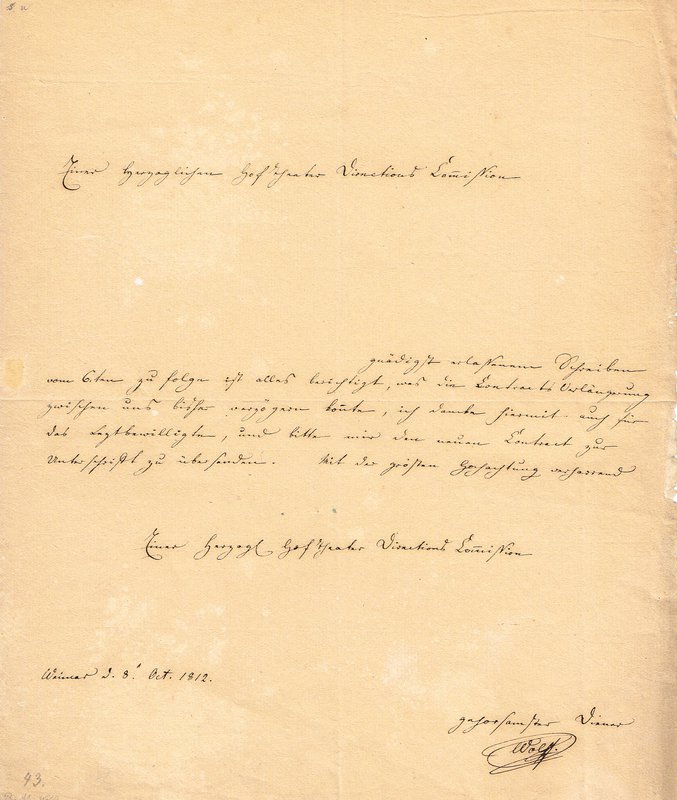 Einer Herzoglichen Hof Theater Directions Com̅ission
gnädigst erlassenem Schreiben
vom 6.ten zu folge ist alles berichtigt, was die Contracts Verlängerung
zwischen uns bisher verzögern konnte, ich danke hiermit auch für
das Letztbewilligte, und bitte mir den neuen Contract zur
Unterschrift zu übersenden. Mit der größten Hochachtung verharrend
Einer Herzogl Hof Theater Directions Com̅ission
Weimar d. 8. Oct. 1812.
gehorsamster Diener
Wolff.
43.